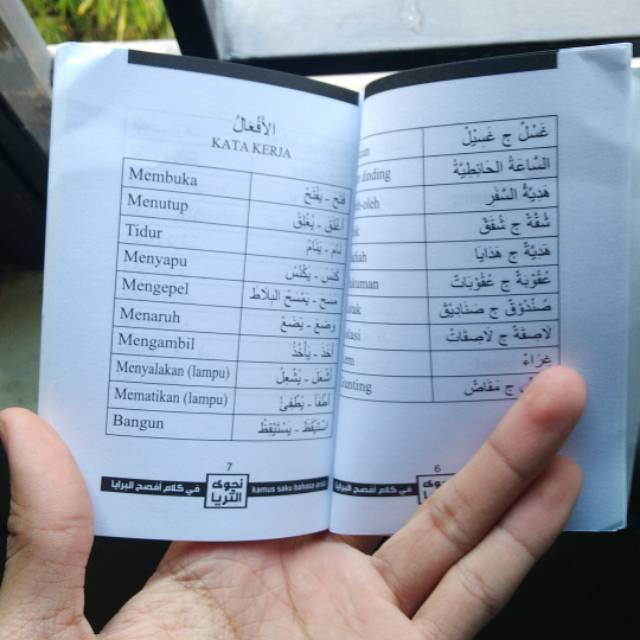 الأَفْعَالُ
KATA KERJA
Membuka فَتَحَ - يَفْتَحُ
Menutup غَلَقَ - يَغْلُقُ
Tidur نَامَ - يَنَامُ
Menyapu كَنَسَ - يَكْنُسُ
Mengepel مَسَحَ - يَمْسَحُ البَلَاطَ
Menaruh وَضَعَ - يَضَعُ
Mengambil أَخَذَ - يَأْخُذُ
Menyalakan (lampu) أَشْعَلَ - يُشْعِلُ
Mematikan (lampu) أَطْفَأَ - يُطْفِئُ
Bangun اِسْتَيْقَظَ - يَسْتَيْقِظُ
7
في كلام أفصح البرايا
نجوى
الثريا
kamus saku bahasa
ج
السَّاعَةُ الحَائِطِيَّةُ
هَدِيَّةُ السَّفَرِ
شُقَّةٌ ج شُقَقٌ
هَدِيَّةٌ ج هَدَايَا
عُقُوْبَةٌ ج عُقُوْبَاتٌ
صُنْدُوْقٌ ج صَنَادِيْقُ
لَاصِقَةٌ ج لَاصِقَاتٌ
غِرَاءٌ
ج مَقَاصُّ
6
في كلام أفصح البرايا